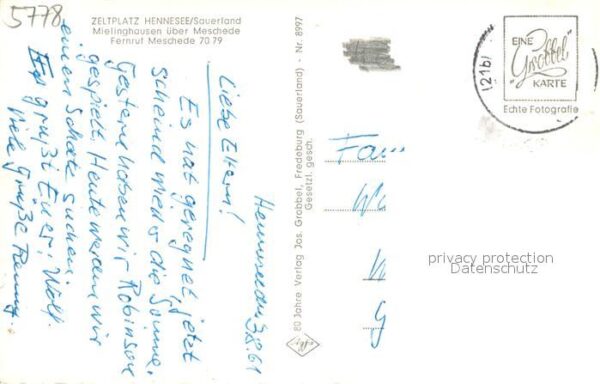 5778
ZELTPLATZ HENNESEE/Sauerland
Mielinghausen über Meschede
Fernruf Meschede 70 79
Hennesee 3.8.61
Liebe Eltern!
Es hat geregnet, jetzt
scheint wieder die Sonne.
Gestern haben wir Robinson
gespielt. Heute werden wir
einen Schatz suchen.
Es grüßt Euer Wolf.
Viele Grüße
80 Jahre Verlag Jos. Grobbel, Fredeburg (Sauerland) - Nr. 8997
Gesetzl. gesch.
(21b)
EINE
"Grobbel"
KARTE
Echte Fotografie
Fam
privacy protection
Datenschutz